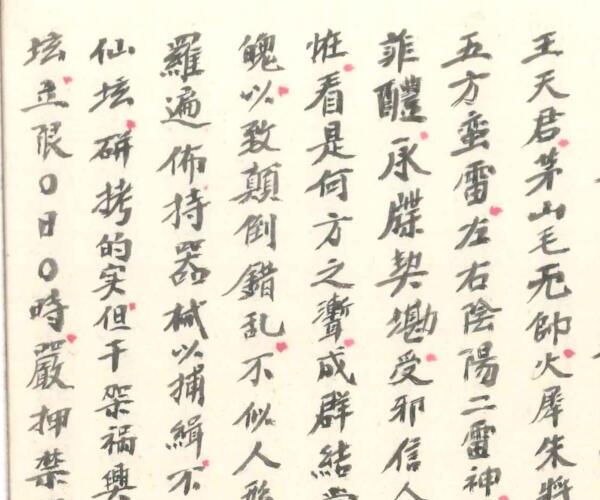 王天君茅山毛元帥火犀朱將
五方蛮雷左右陰陽二雷神
菲醴承牒契勘受邪信人
惟看是何方之聻成群結党
魄以致顛倒錯乱不似人形
羅遍佈持器械以捕緝不
仙坛研拷的实但干架禍興
坛立限〇日〇時嚴押禁